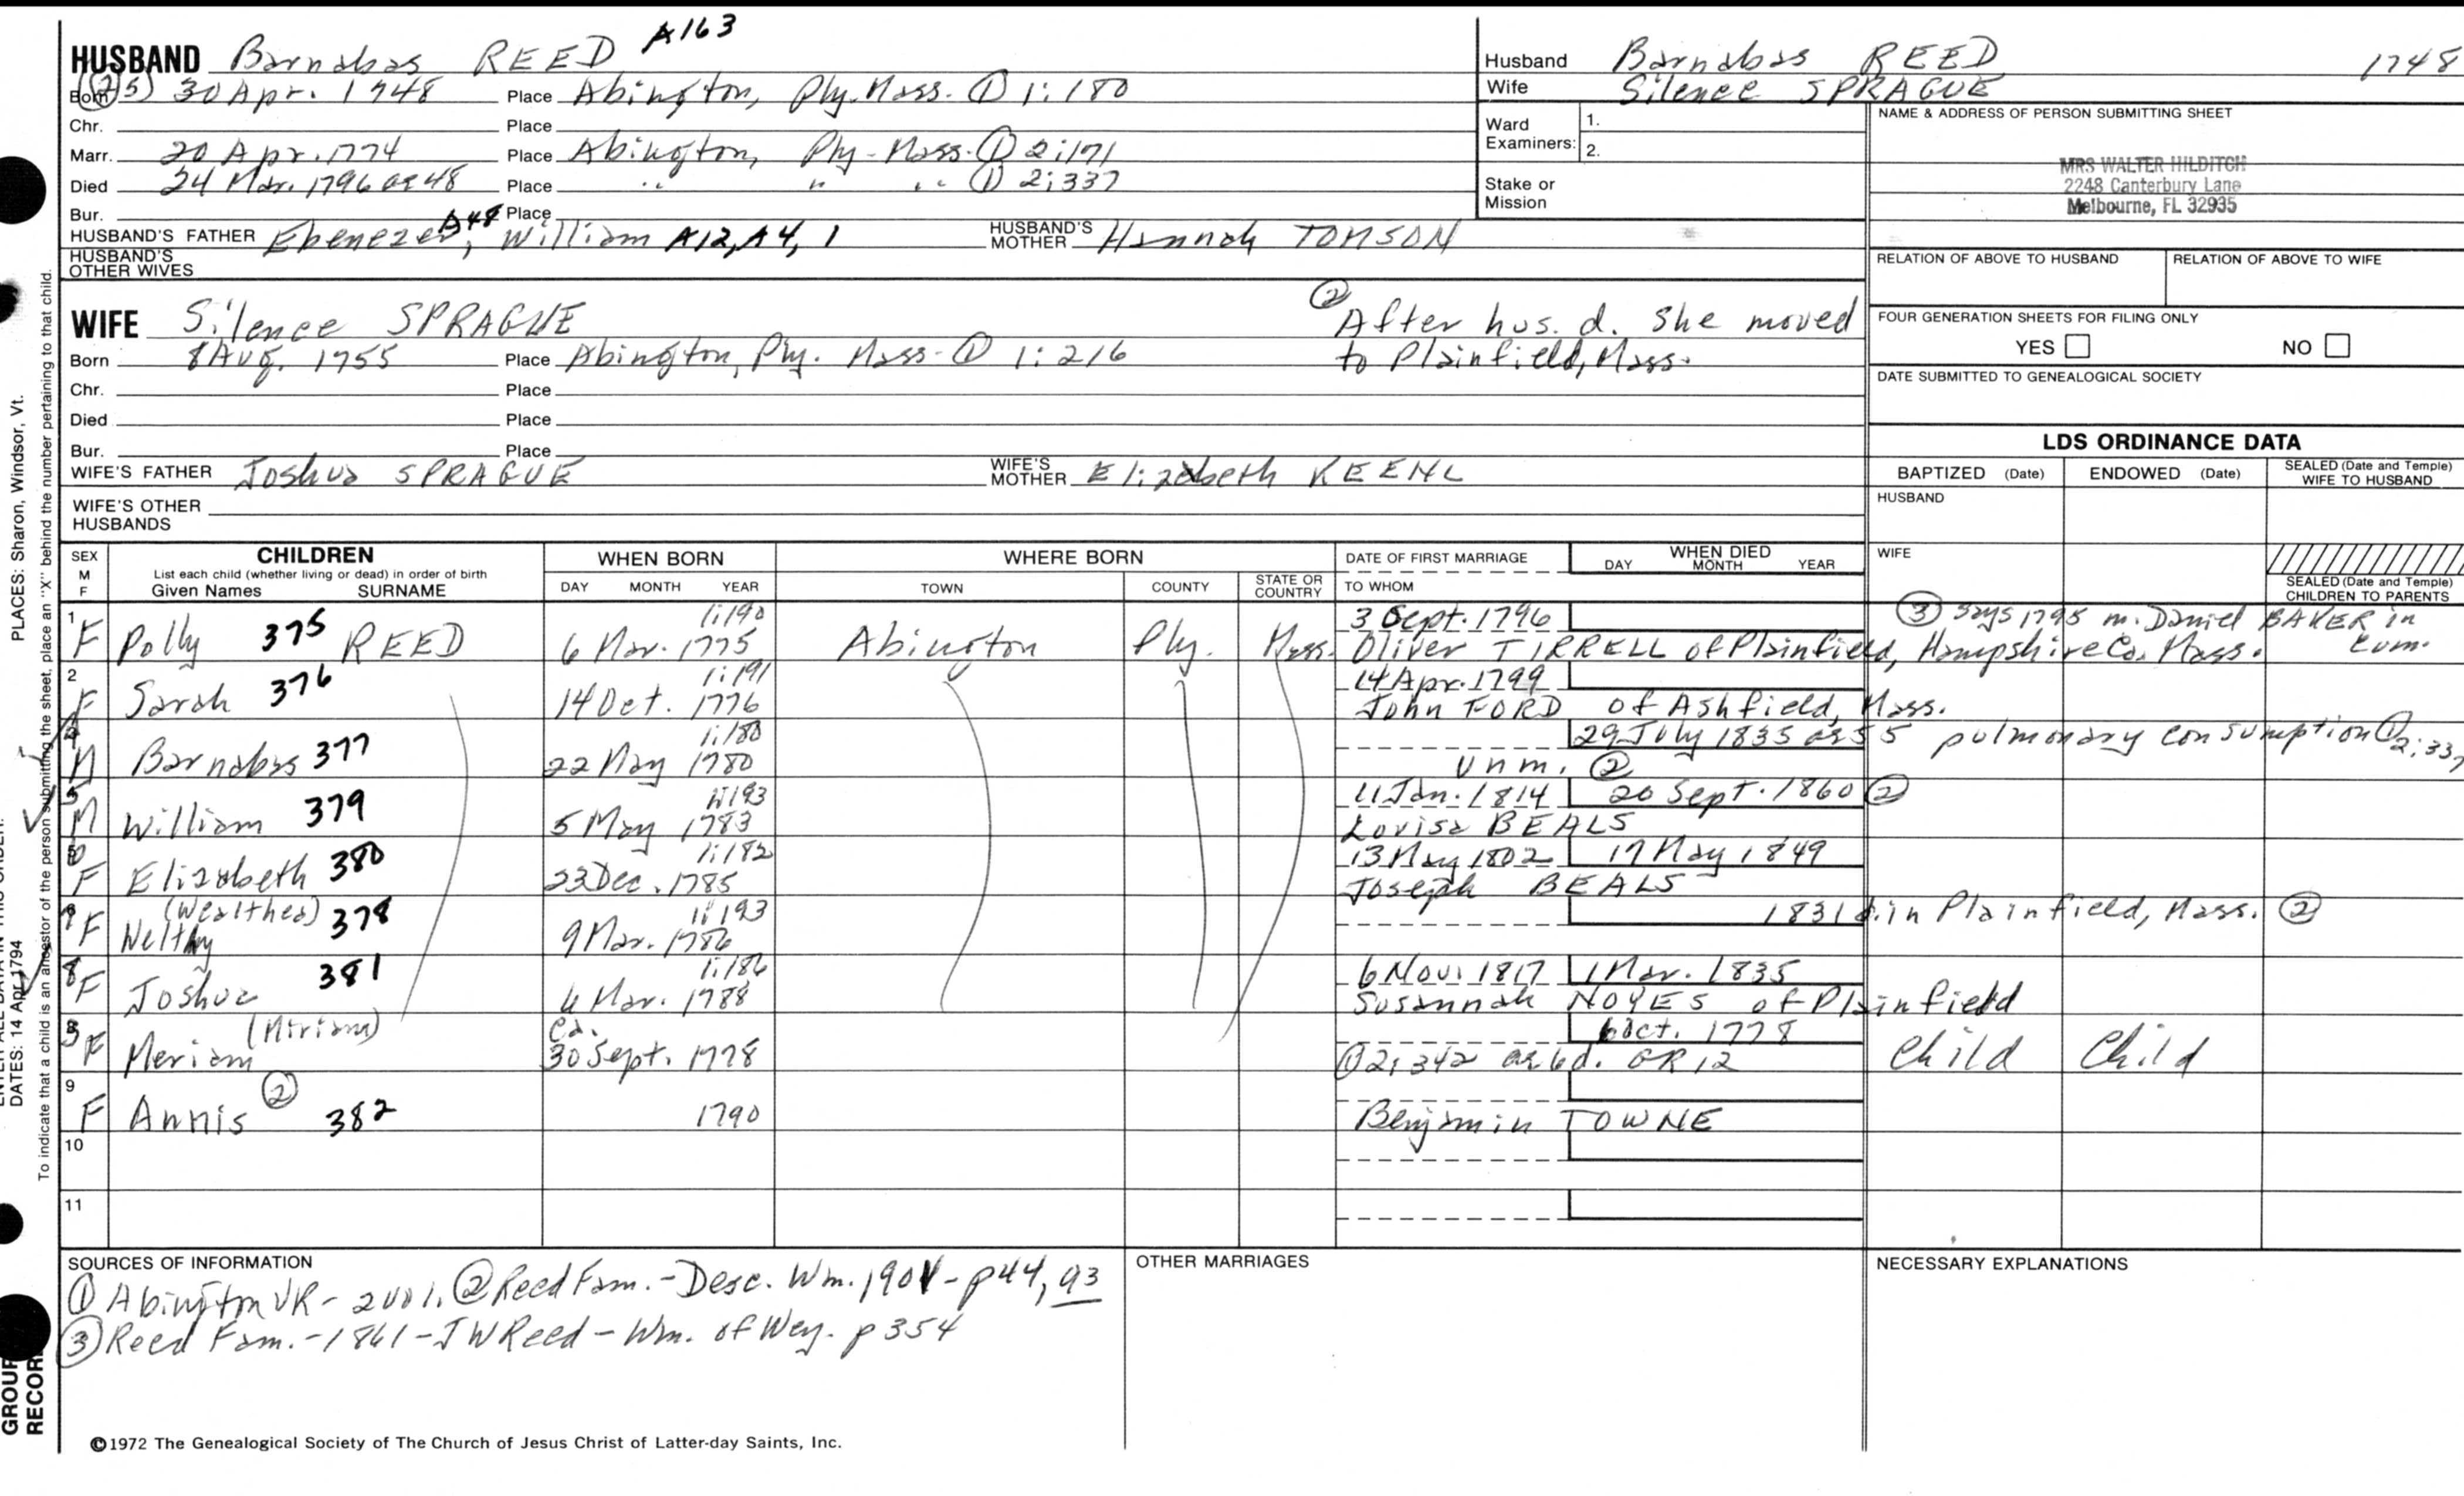 A163
HUSBAND Barnabas REED
Born (25) 30 Apr. 1748 Place Abington, Ply. Mass. ① 1:180
Chr. Place
Marr. 20 Apr. 1774 Place Abington, Ply. Mass. ① 2:171
Died 24 Mar. 1796 ae 48 Place " " " ① 2:337
Bur. Place
HUSBAND'S FATHER Ebenezer A48, William A12, A4, 1 HUSBAND'S MOTHER Hannah TOMSON
HUSBAND'S OTHER WIVES
Husband Barnabas REED 1748
Wife Silence SPRAGUE
Ward Examiners: 1.
2.
Stake or Mission
NAME & ADDRESS OF PERSON SUBMITTING SHEET
MRS WALTER HILDITCH
2248 Canterbury Lane
Melbourne, FL 32935
RELATION OF ABOVE TO HUSBAND RELATION OF ABOVE TO WIFE
FOUR GENERATION SHEETS FOR FILING ONLY
YES NO
DATE SUBMITTED TO GENEALOGICAL SOCIETY
WIFE Silence SPRAGUE
Born 8 Aug. 1755 Place Abington, Ply. Mass. ① 1:216
② After hus. d. she moved
to Plainfield, Mass.
Chr. Place
Died Place
Bur. Place
WIFE'S FATHER Joshua SPRAGUE WIFE'S MOTHER Elizabeth KEENE
WIFE'S OTHER HUSBANDS
LDS ORDINANCE DATA
BAPTIZED (Date) ENDOWED (Date) SEALED (Date and Temple) WIFE TO HUSBAND
HUSBAND
WIFE
SEALED (Date and Temple) CHILDREN TO PARENTS
SEX M F CHILDREN List each child (whether living or dead) in order of birth Given Names SURNAME
WHEN BORN DAY MONTH YEAR
WHERE BORN TOWN COUNTY STATE OR COUNTRY
DATE OF FIRST MARRIAGE TO WHOM
WHEN DIED DAY MONTH YEAR
1 F Polly 375 REED 1:190 6 Mar. 1775 Abington Ply. Mass. 3 Sept. 1796
Oliver TIRRELL of Plainfield, Hampshire Co. Mass.
③ says 1795 m. Daniel BAKER in Cum.
2 F Sarah 376 1:191 14 Oct. 1776 14 Apr. 1799
John FORD of Ashfield, Mass.
4 M Barnabas 377 1:180 22 May 1780 29 July 1835 ae 55 pulmonary consumption ① 2:337
Unm. ②
5 M William 379 1:193 5 May 1783 11 Jan. 1814 20 Sept. 1860 ②
Lovisa BEALS
6 F Elizabeth 380 1:182 23 Dec. 1785 13 May 1802 17 May 1849
Joseph BEALS
7 F (Wealthea) Welthy 378 1:193 9 Mar. 1786 1831 d. in Plainfield, Mass. ②
8 F Joshua 381 1:186 4 Mar. 1788 6 Nov. 1817 1 Mar. 1835
Susannah NOYES of Plainfield
3 F Meriam (Miriam) ca. 30 Sept. 1778 6 Oct. 1778
① 2:342 ae 6d. GR 12 Child Child
9 F Annis ② 382 1790 Benjamin TOWNE
10
11
SOURCES OF INFORMATION
① Abington VR - 2 vol. ② Reed Fam. - Desc. Wm. 1901 - p44, 93
③ Reed Fam. - 1861 - JW Reed - Wm. of Wey. p 354
OTHER MARRIAGES
NECESSARY EXPLANATIONS
©1972 The Genealogical Society of The Church of Jesus Christ of Latter-day Saints, Inc.
To indicate that a child is an ancestor of the person submitting the sheet, place an "X" behind the number pertaining to that child.
PLACES: Sharon, Windsor, Vt.
DATES: 14 Apr 1794
GROUP
RECORD